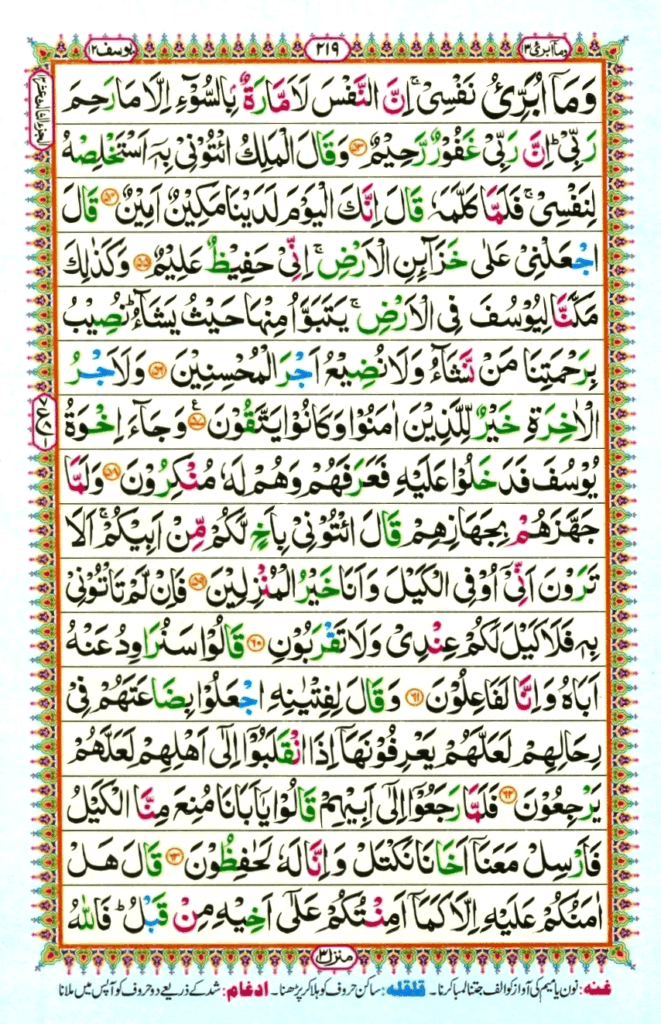 وما ابرئ ۱۳
۲۱۹
یوسف ۱۲
وَمَاۤ اُبَرِّئُ نَفْسِیْ ۚ اِنَّ النَّفْسَ لَاَمَّارَةٌۢ بِالسُّوْٓءِ اِلَّا مَا رَحِمَ
رَبِّیْ ؕ اِنَّ رَبِّیْ غَفُوْرٌ رَّحِیْمٌ ﴿۵۳﴾ وَقَالَ الْمَلِكُ ائْتُوْنِیْ بِهٖۤ اَسْتَخْلِصْهُ
لِنَفْسِیْ ۚ فَلَمَّا كَلَّمَهٗ قَالَ اِنَّكَ الْیَوْمَ لَدَیْنَا مَكِیْنٌ اَمِیْنٌ ﴿۵۴﴾ قَالَ
اجْعَلْنِیْ عَلٰی خَزَآئِنِ الْاَرْضِ ۚ اِنِّیْ حَفِیْظٌ عَلِیْمٌ ﴿۵۵﴾ وَكَذٰلِكَ
مَكَّنَّا لِیُوْسُفَ فِی الْاَرْضِ ۚ یَتَبَوَّاُ مِنْهَا حَیْثُ یَشَآءُ ؕ نُصِیْبُ
بِرَحْمَتِنَا مَنْ نَّشَآءُ وَلَا نُضِیْعُ اَجْرَ الْمُحْسِنِیْنَ ﴿۵۶﴾ وَلَاَجْرُ
الْاٰخِرَةِ خَیْرٌ لِّلَّذِیْنَ اٰمَنُوْا وَكَانُوْا یَتَّقُوْنَ ﴿۵۷﴾ ع وَجَآءَ اِخْوَةُ
یُوْسُفَ فَدَخَلُوْا عَلَیْهِ فَعَرَفَهُمْ وَهُمْ لَهٗ مُنْكِرُوْنَ ﴿۵۸﴾ وَلَمَّا
جَهَّزَهُمْ بِجَهَازِهِمْ قَالَ ائْتُوْنِیْ بِاَخٍ لَّكُمْ مِّنْ اَبِیْكُمْ ۚ اَلَا
تَرَوْنَ اَنِّیْۤ اُوْفِی الْكَیْلَ وَاَنَا خَیْرُ الْمُنْزِلِیْنَ ﴿۵۹﴾ فَاِنْ لَّمْ تَاْتُوْنِیْ
بِهٖ فَلَا كَیْلَ لَكُمْ عِنْدِیْ وَلَا تَقْرَبُوْنِ ﴿۶۰﴾ قَالُوْا سَنُرَاوِدُ عَنْهُ
اَبَاهُ وَاِنَّا لَفَاعِلُوْنَ ﴿۶۱﴾ وَقَالَ لِفِتْیٰنِهِ اجْعَلُوْا بِضَاعَتَهُمْ فِیْ
رِحَالِهِمْ لَعَلَّهُمْ یَعْرِفُوْنَهَاۤ اِذَا انْقَلَبُوْۤا اِلٰۤی اَهْلِهِمْ لَعَلَّهُمْ
یَرْجِعُوْنَ ﴿۶۲﴾ فَلَمَّا رَجَعُوْۤا اِلٰۤی اَبِیْهِمْ قَالُوْا یٰۤاَبَانَا مُنِعَ مِنَّا الْكَیْلُ
فَاَرْسِلْ مَعَنَاۤ اَخَانَا نَكْتَلْ وَاِنَّا لَهٗ لَحٰفِظُوْنَ ﴿۶۳﴾ قَالَ هَلْ
اٰمَنُكُمْ عَلَیْهِ اِلَّا كَمَاۤ اَمِنْتُكُمْ عَلٰۤی اَخِیْهِ مِنْ قَبْلُ ؕ فَاللّٰهُ
منزل ۳
غنه: نون یا میم کی آواز کو الف جتنا لمبا کرنا۔ قلقله: ساکن حروف کو ہلا کر پڑھنا۔ ادغام: شد کے ذریعے دو حروف کو آپس میں ملانا